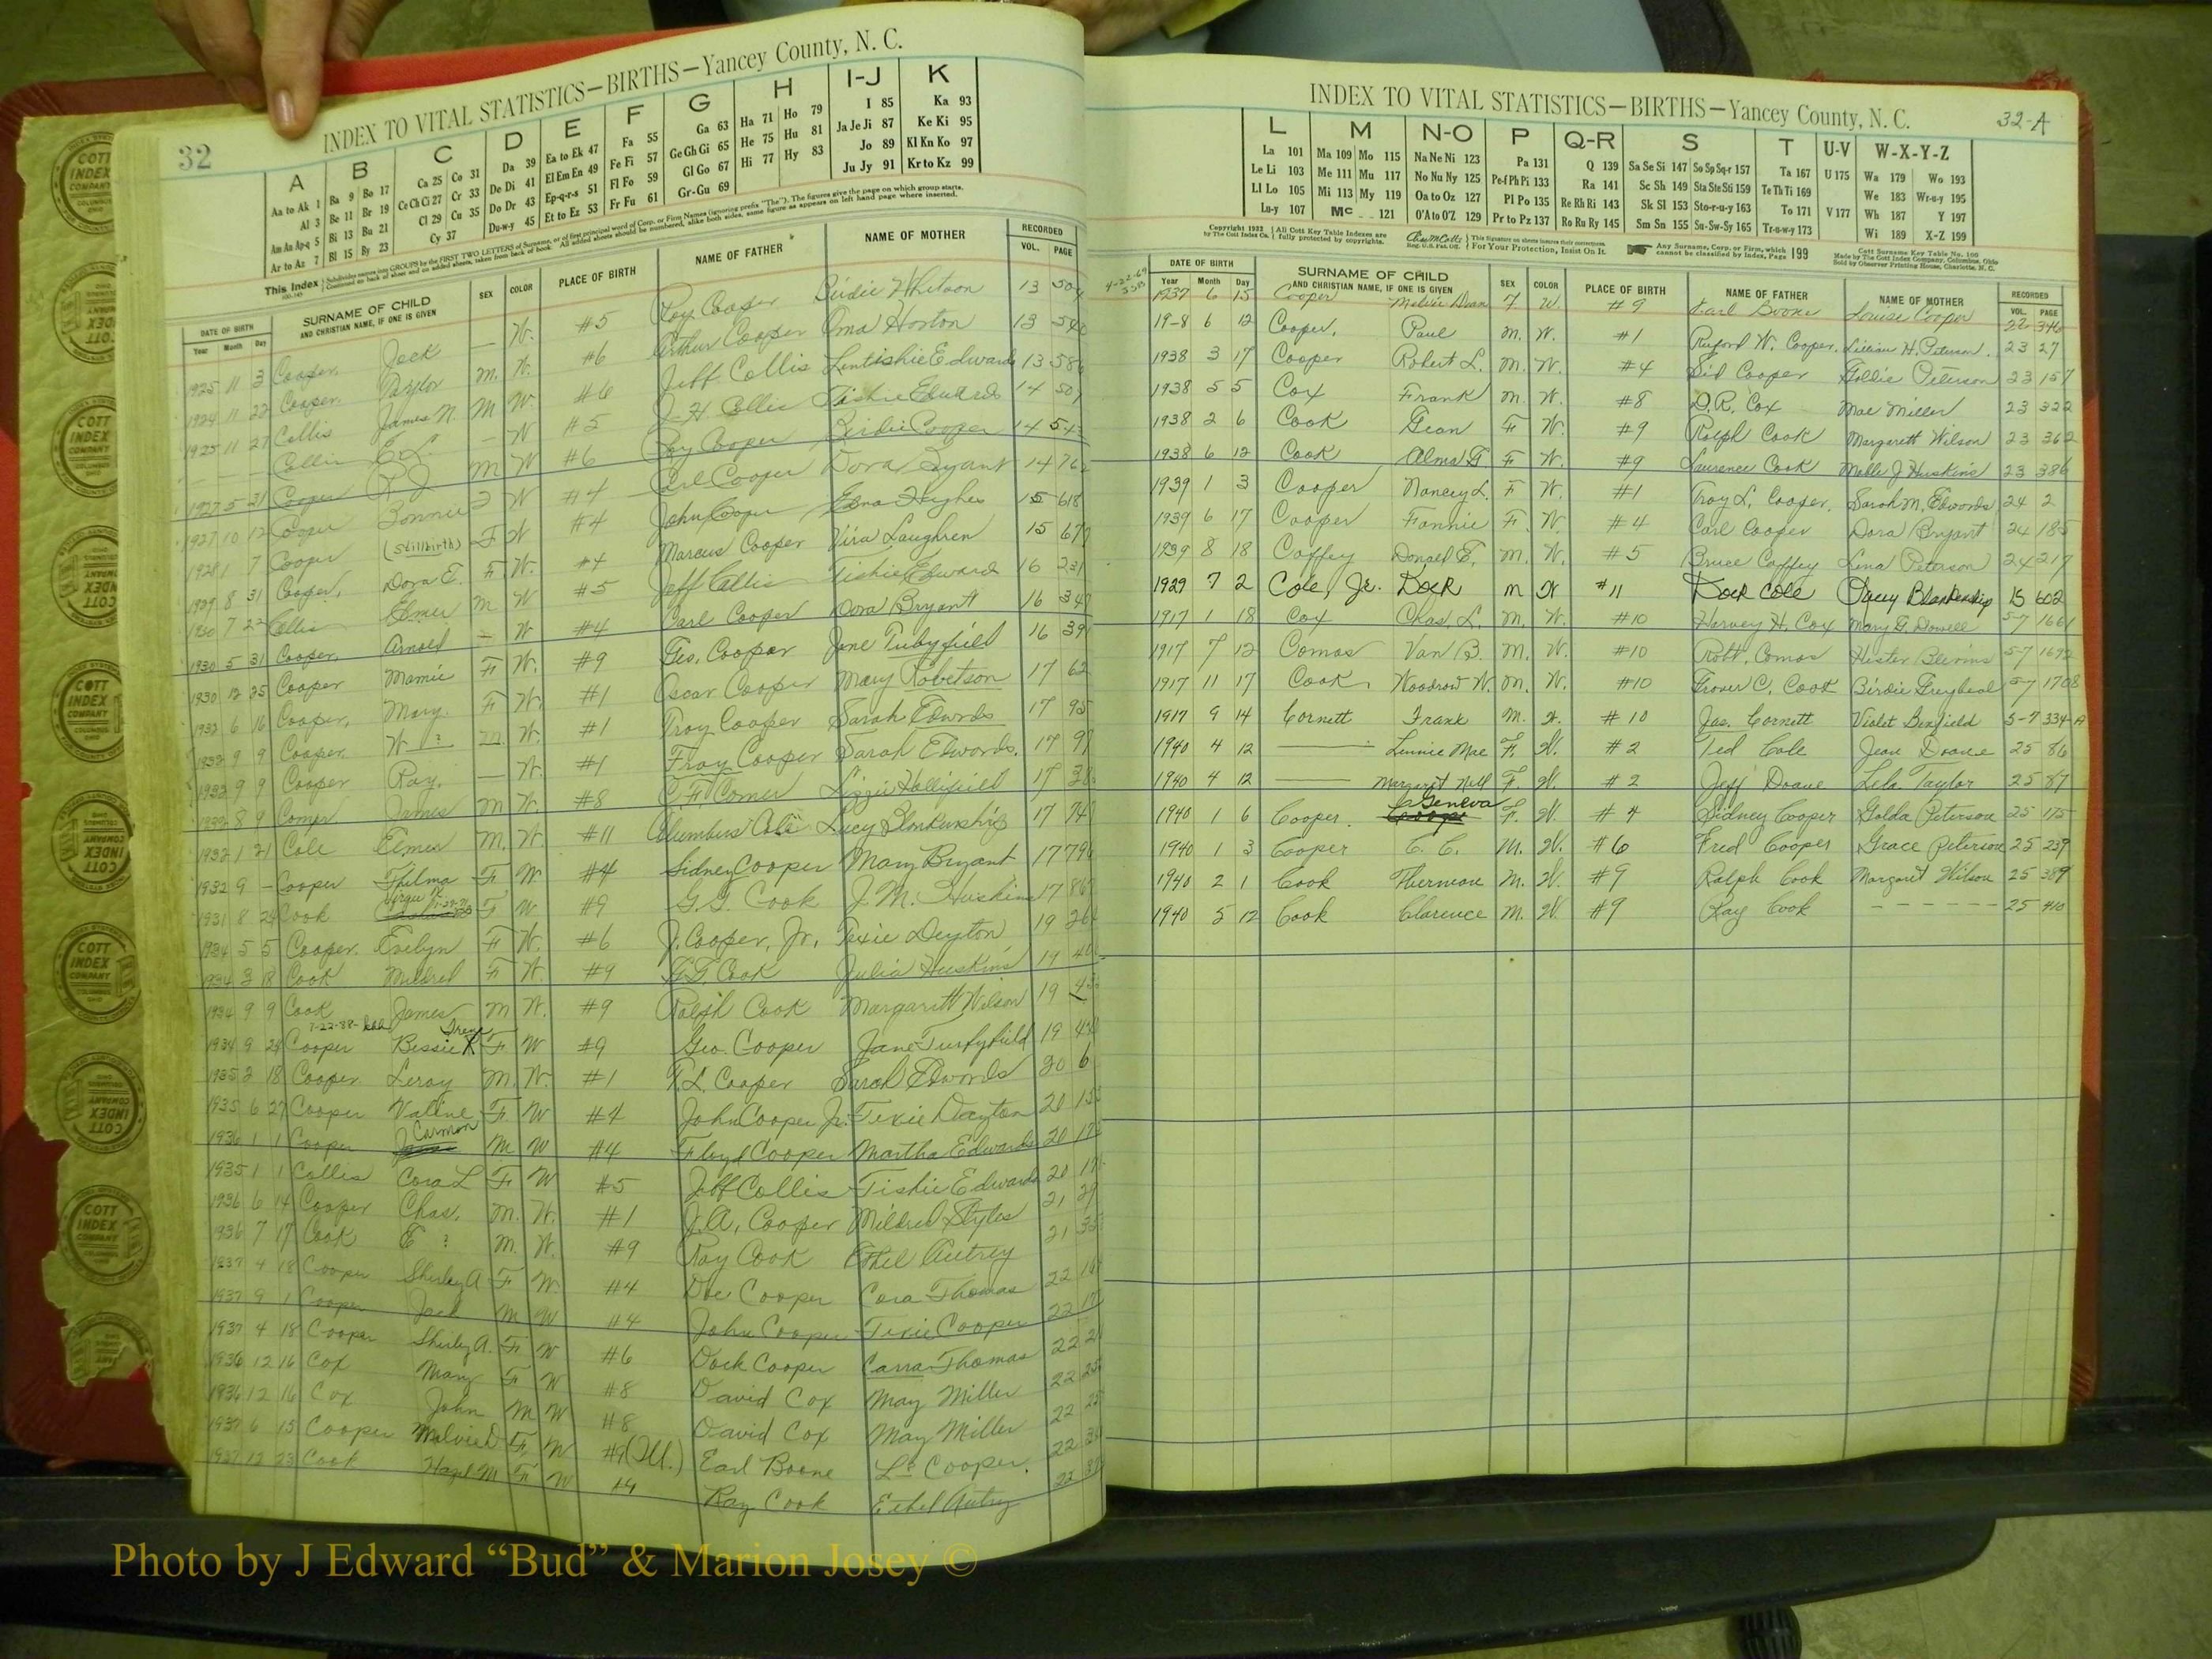 32
INDEX TO VITAL STATISTICS—BIRTHS—Yancey County, N. C.
A B C D E F G H I-J K
Aa to Ak 1 Ba 9 Bo 17 Ca 25 Co 31 Da 39 Ea to Ek 47 Fa 55 Ga 63 Ha 71 Ho 79 I 85 Ka 93
Al 3 Be 11 Br 19 Ce Ch Ci 27 Cr 33 De Di 41 El Em En 49 Fe Fi 57 Ge Gh Gi 65 He 75 Hu 81 Ja Je Ji 87 Ke Ki 95
Am An Ap-q 5 Bi 13 Bu 21 Cl 29 Cu 35 Do Dr 43 Ep-q-r-s 51 Fl Fo 59 Gl Go 67 Hi 77 Hy 83 Jo 89 Kl Kn Ko 97
Ar to Az 7 Bl 15 By 23 Cy 37 Du-w-y 45 Et to Ez 53 Fr Fu 61 Gr-Gu 69 Ju Jy 91 Kr to Kz 99
DATE OF BIRTH SURNAME OF CHILD AND CHRISTIAN NAME, IF ONE IS GIVEN SEX COLOR PLACE OF BIRTH NAME OF FATHER NAME OF MOTHER RECORDED
Year Month Day VOL. PAGE
1925 11 3 Cooper Jack — W. #5 Roy Cooper Birdie Whitson 13
1924 11 22 Cooper Taylor M. W. #6 Arthur Cooper Oma Horton 13
1925 11 27 Collis James N. M W. #6 Jeff Collis Lentishie Edwards 13
Collis E. L. — W #5 J. H. Collis Tishie Edwards 14
1927 5 31 Cooper R. J. M W #6 Roy Cooper Birdie Cooper 14
1927 10 12 Cooper Bonnie F W #4 Carl Cooper Dora Bryant 14
1928 1 7 Cooper (Stillbirth) F W #4 John Cooper Edna Hughes 15 618
1929 8 31 Cooper, Dora E. F. W. #4 Marcus Cooper Vira Laughren 15
1930 7 22 Collis Elmer M W #5 Jeff Collis Tishie Edward 16 231
1930 5 31 Cooper, Arnold — W #4 Carl Cooper Dora Bryant 16
1930 12 25 Cooper Mamie F. W. #9 Geo. Cooper Jane Turbyfield 16
1932 6 16 Cooper, Mary. F. W. #1 Oscar Cooper Mary Robetson 17
1932 9 9 Cooper. W ? M. W. #1 Troy Cooper Sarah Edwrds 17
1932 9 9 Cooper Ray. — W. #1 Troy Cooper Sarah Edwords. 17
1932 8 9 Comer James M W. #8 C. F. Comer Lizzie Hollifield 17
1932 1 21 Cole Elmer M. W. #11 Columbus Cole Lucy Blnkenship 17
1932 9 — Cooper Thelma F. W #4 Sidney Cooper Mary Bryant 17
1931 8 24 Cook F W #9 G. G. Cook J. M. Huskins 17
1934 5 5 Cooper. Evelyn F W. #6 J. Cooper, Jr. Texie Deyton 19
1934 3 18 Cook Mildred F W. #9 G. G. Cook Julia Huskins 19
1934 9 9 Cook James M W. #9 Ralph Cook Margarett Wilson 19
7-22-88
1934 9 24 Cooper Bessie Irene F W #9 Geo. Cooper Jane Turfyfield 19
1935 2 18 Cooper Leroy M. W. #1 T. L. Cooper Sarah Edwords 20 6
1935 6 27 Cooper Valine F. W #4 John Cooper Jr. Texie Dayton 20
1936 1 1 Cooper Carmon M W #4 Floyd Cooper Martha Edwards 20
1935 1 1 Collis Cora L F W #5 Jeff Collis Tishie Edwards 20
1936 6 14 Cooper Chas. M. W. #1 J. A. Cooper Mildred Styles 21
1936 7 17 Cook E ? M. W. #9 Ray Cook Ethel Autrey 21
1937 4 18 Cooper Shirley A F. W. #4 Doc Cooper Cora Thomas 22
1937 9 1 Cooper Jack M W #4 John Cooper Texie Cooper 22
1937 4 18 Cooper Shirley A. F. W #6 Dock Cooper Carra Thomas 22
1936 12 16 Cox Mary F W #8 David Cox May Miller 22
1936 12 16 Cox John M W #8 David Cox May Miller 22
1937 6 15 Cooper Melvie D F. W #9 (Ill.) Earl Boone L. Cooper. 22
1937 12 23 Cook Hazel M F W #9 Ray Cook Ethel Autry 22
INDEX TO VITAL STATISTICS—BIRTHS—Yancey County, N. C.
32-A
L M N-O P Q-R S T U-V W-X-Y-Z
La 101 Ma 109 Mo 115 Na Ne Ni 123 Pa 131 Q 139 Sa Se Si 147 So Sp Sq-r 157 Ta 167 U 175 Wa 179 Wo 193
Le Li 103 Me 111 Mu 117 No Nu Ny 125 Pe-f Ph Pi 133 Ra 141 Sc Sh 149 Sta Ste Sti 159 Te Th Ti 169 We 183 Wr-u-y 195
Ll Lo 105 Mi 113 My 119 Oa to Oz 127 Pl Po 135 Re Rh Ri 143 Sk Sl 153 Sto-r-u-y 163 To 171 V 177 Wh 187 Y 197
Lu-y 107 Mc 121 O'A to O'Z 129 Pr to Pz 137 Ro Ru Ry 145 Sm Sn 155 Su-Sw-Sy 165 Tr-u-w-y 173 Wi 189 X-Z 199
Copyright 1932 by The Cott Index Co. All Cott Key Table Indexes are fully protected by copyrights. This Signature on sheets insures their correctness. For Your Protection, Insist On It. Any Surname, Corp. or Firm, which cannot be classified by Index, Page 199
Cott Surname Key Table No. 100
Made by The Cott Index Company, Columbus, Ohio
Sold by Observer Printing House, Charlotte, N. C.
DATE OF BIRTH SURNAME OF CHILD AND CHRISTIAN NAME, IF ONE IS GIVEN SEX COLOR PLACE OF BIRTH NAME OF FATHER NAME OF MOTHER RECORDED
Year Month Day VOL. PAGE
1937 6 15 Cooper Melvie Dean F W. #9 Earl Boone Louise Cooper 22 346
19-8 6 12 Cooper, Paul M. W. #1 Ruford W. Cooper. Lillian H. Peterson. 23 27
1938 3 17 Cooper Robert L. M. W. #4 Sid Cooper Gollie Peterson 23 157
1938 5 5 Cox Frank M. W. #8 D. R. Cox Mae Miller 23 322
1938 2 6 Cook Gean F W. #9 Ralph Cook Margarett Wilson 23 362
1938 6 12 Cook Alma F W. #9 Laurence Cook Melle J Huskins 23 386
1939 1 3 Cooper Nancy L. F W. #1 Troy L. Cooper. Sarah M. Edwords 24 2
1939 6 17 Cooper Fannie F. W. #4 Carl Cooper Dora Bryant 24 185
1939 8 18 Coffey Donald E. M. W. #5 Bruce Coffey Lena Peterson 24 217
1929 7 2 Cole, Jr. Dock M W #11 Dock Cole Blankenship 15 602
1917 1 18 Cox Chas. L. M. W. #10 Harvey H. Cox Mary G. Dowell 5-7 1661
1917 7 12 Comas Van B. M. W. #10 Robt. Comas Hester Blevins 5-7
1917 11 17 Cook Woodrow W. M. W. #10 Grover C. Cook Birdie Greybeal 5-7 1708
1917 9 14 Cornett Frank M. W. #10 Jas. Cornett Violet Benfield 5-7 334-A
1940 4 12 — Linnie Mae F. W. #2 Ted Cole Jean Doane 25 86
1940 4 12 — Margaret Nell F. W. #2 Jeff Doane Lela Taylor 25 87
1940 1 6 Cooper. Geneva F. W. #4 Sidney Cooper Golda Peterson 25 175
1940 1 3 Cooper C. C. M. W. #6 Fred Cooper Grace Peterson 25 239
1940 2 1 Cook Thermon M. W. #9 Ralph Cook Margaret Wilson 25 389
1940 5 12 Cook Clarence M. W. #9 Ray Cook - - - - - - 25 410
COTT INDEX COMPANY COLUMBUS OHIO
Photo by J Edward “Bud” & Marion Josey ©